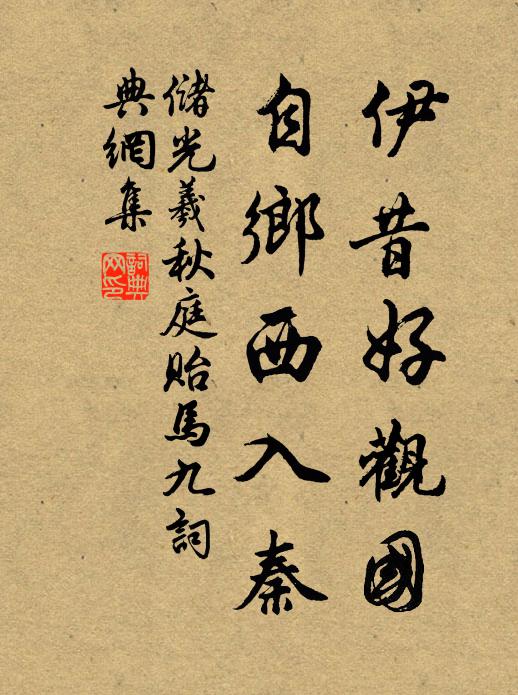 伊昔好觀國
自鄉西入秦
儲光羲秋庭貽馬九詞
典網集
詞典网印